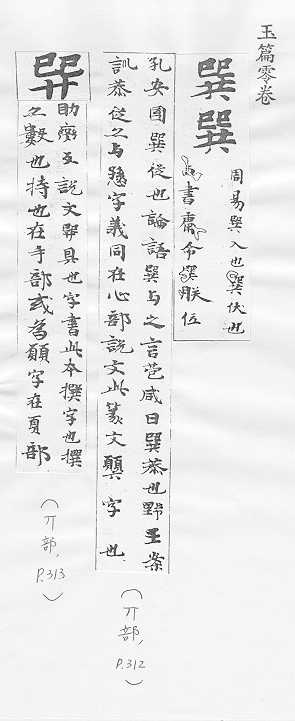 玉篇零卷
巽巽
周易巽入也巽伏也
書庸令巽朕位
孔安國巽從也論語巽与之言苞咸曰巽恭也野王案
訓恭從之与愻字義同在心部說文此篆文顨字也
(丌部, P.312)
𢁉
助臠反說文𢁉具也字書此本撰字也撰
之數也持也在手部或為顨字在頁部
(丌部, P.313)